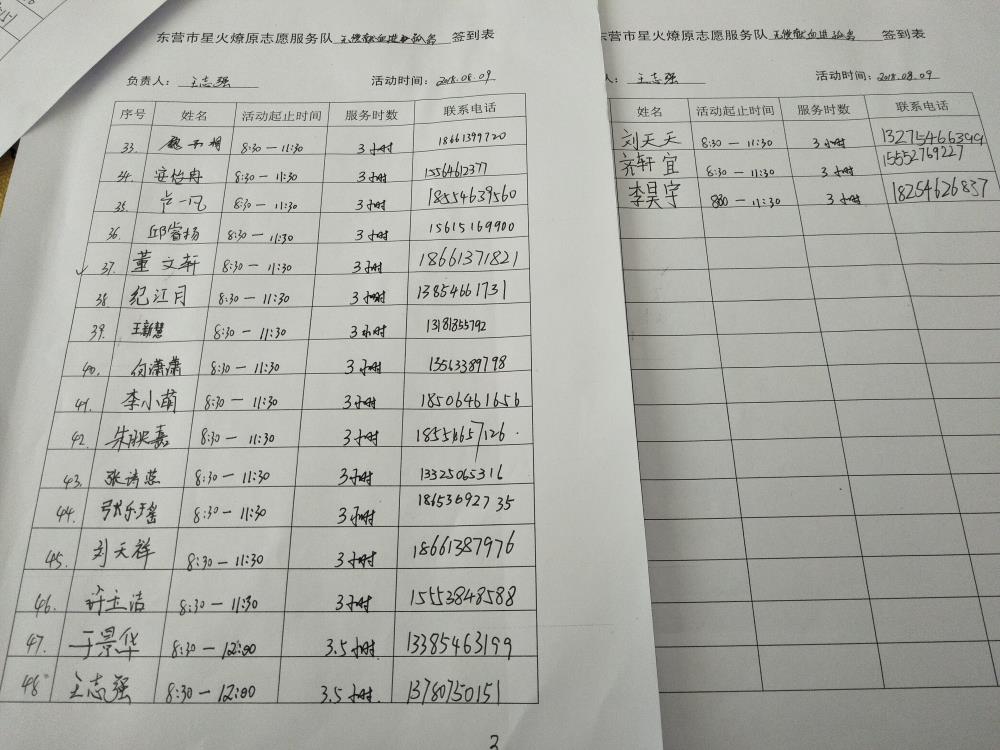 东营市星火燎原志愿服务队 无偿献血进 签到表
负责人： 王志强 活动时间：2018.08.09
序号 姓名 活动起止时间 服务时数 联系电话
33. 8:30 — 11:30 3小时 18661399720
34. 安怡冉 8:30 — 11:30 3小时 15564612377
35. 一凡 8:30 — 11:30 3小时 18554639560
36. 邱睿扬 8:30 — 11:30 3小时 15615169900
✓ 37. 董文轩 8:30 — 11:30 3小时 18661371821
38 纪江月 8:30 — 11:30 3小时 13854661731
39. 王新慧 8:30 — 11:30 3小时 13181855792
40. 向潇潇 8:30 — 11:30 3小时 13563389798
41. 李小萌 8:30 — 11:30 3小时 18506461656
42. 朱映嘉 8:30 — 11:30 3小时
43. 张诗蕊 8:30 — 11:30 3小时 13325065316
44. 张乐瑶 8:30 — 11:30 3小时 18653692735
45. 刘天祥 8:30 — 11:30 3小时 18661387976
46. 许立洁 8:30 — 11:30 3小时 15553848588
47. 于景华 8:30 — 12:00 3.5小时 13385463199
48 王志强 8:30 — 12:00 3.5小时 13780750151
3
东营市星火燎原志愿服务队 无偿献血进 签到表
人： 王志强 活动时间：2018.08.09
姓名 活动起止时间 服务时数 联系电话
刘天天 8:30 — 11:30 3小时 13275466399
齐轩宜 8:30 — 11:30 3小时 15552769227
李昊宇 8:30 — 11:30 3小时 18254626837